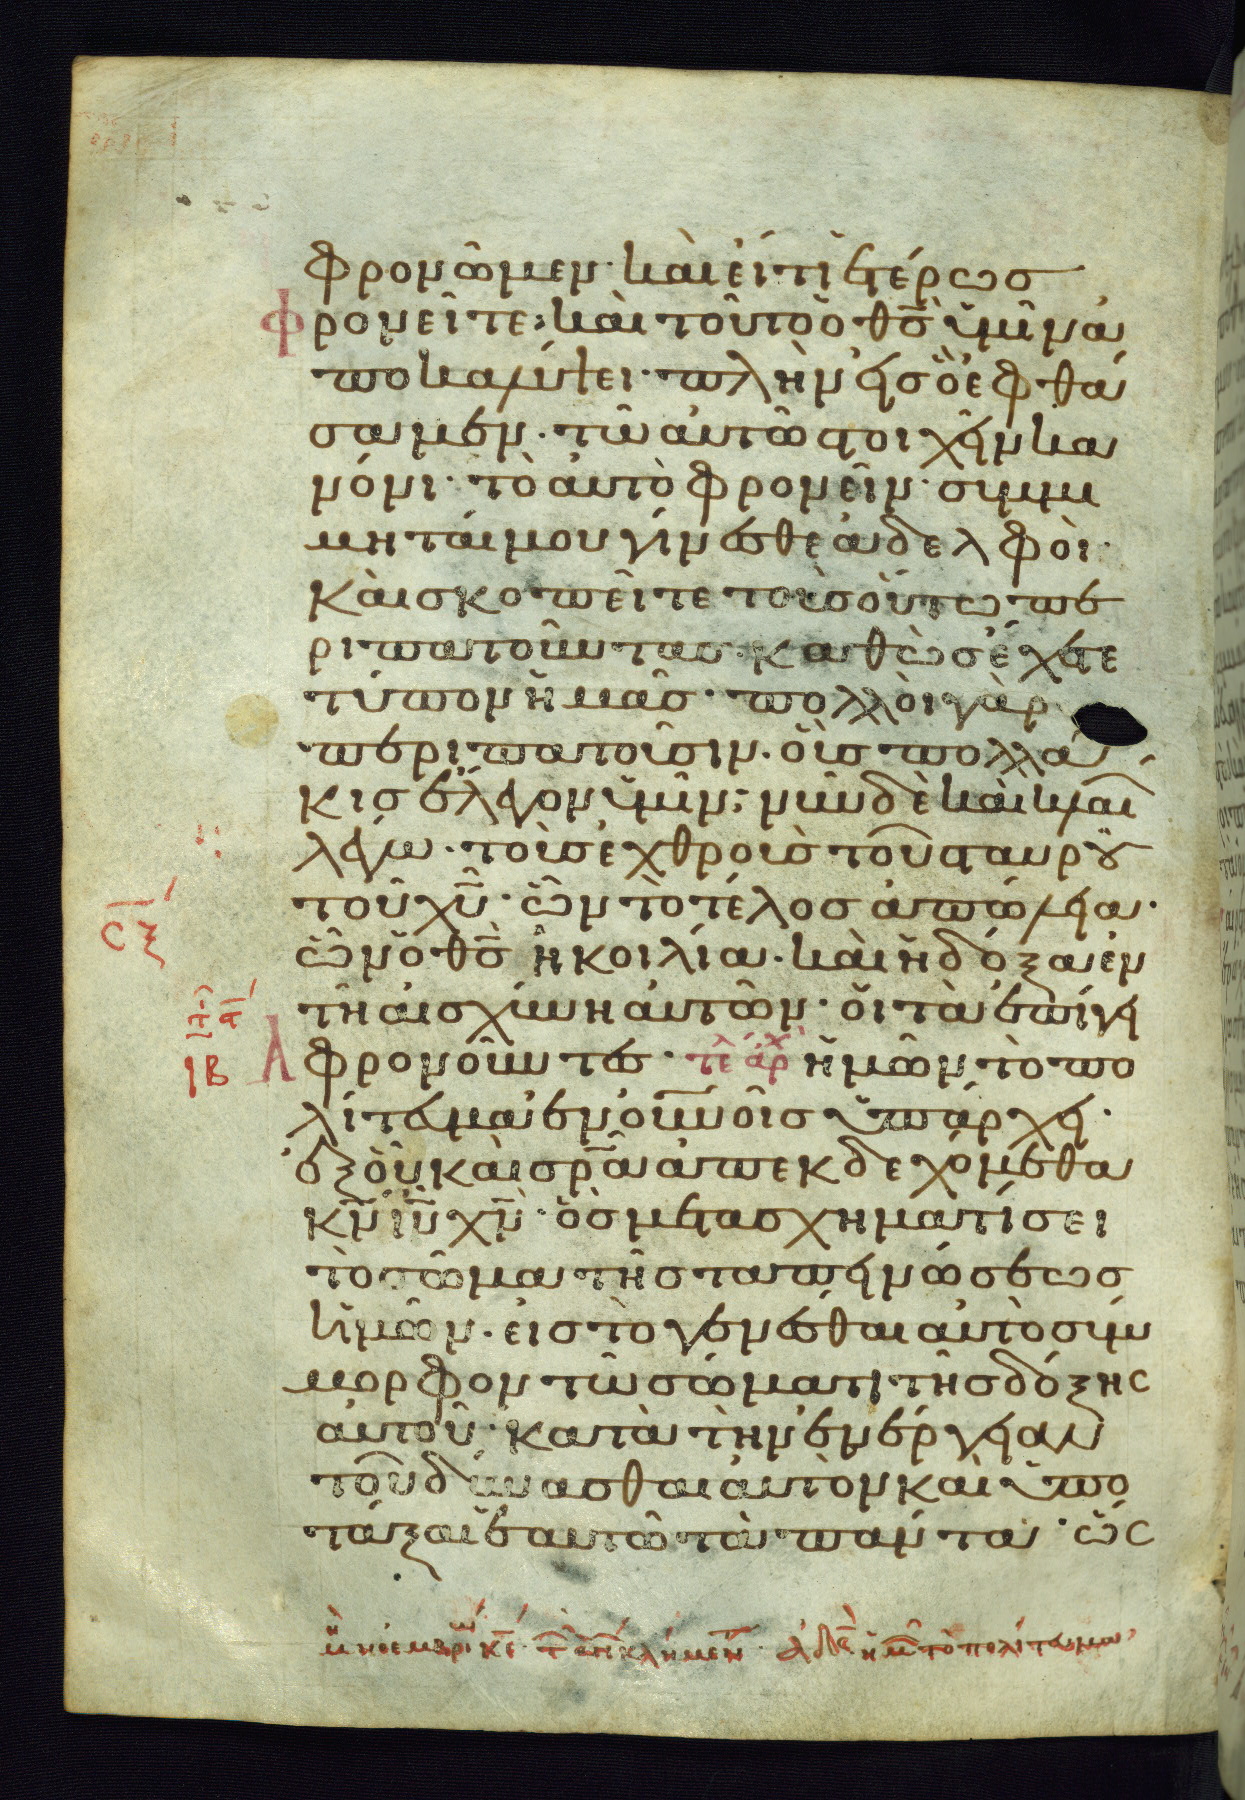 φρονῶμεν· καὶ εἴ τι ἑτέρως
φρονεῖτε· καὶ τοῦτο ὁ θς ὑμῖν ἀ
ποκαλύψει· πλὴν εἰς ὃ ἐφθά
σαμεν· τῶ αὐτῶ στοιχεῖν κα
νόνι· τὸ αὐτὸ φρονεῖν· συμμι
μηταί μου γίνεσθε ἀδελφοὶ·
καὶ σκοπεῖτε τοὺς οὕτω πε
ριπατοῦντας· καθὼς ἔχετε
τύπον ἡμᾶς· πολλοὶ γὰρ
περιπατοῦσιν· οὓς πολλά
κις ἔλεγον ὑμῖν· νῦν δὲ καὶ κλαί
λέγω· τοὺς ἐχθροὺς τοῦ σταυροῦ
τοῦ χυ· ὧν τὸ τέλος ἀπώλεια·
ὧν ὁ θς ἡ κοιλία· καὶ ἡ δόξα ἐν
τῆ αἰσχύνη αὐτῶν· οἱ τὰ ἐπίγει
φρονοῦντες· τε αρχ ἡμῶν τὸ πο
λίτευμα ἐν οὐνοῖς ὑπάρχει·
ἐξ οὗ καὶ σρα ἀπεκδεχόμεθα
κν ιν χν· ὃς μετασχηματίσει
τὸ σῶμα τῆς ταπεινώσεως
ἡμῶν· εἰς τὸ γενέσθαι αὐτὸ σύμ
μορφον τῶ σώματι τῆς δόξης
αὐτοῦ· κατὰ τὴν ἐνέργειαν
τοῦ δύνασθαι αὐτὸν καὶ ὑπο
τάξαι ἑαυτῶ τὰ πάντα· ὥς
ϲξ
ιβ
μη νοεμβρι κε· κλήμεν· ἀδε ἡμ τὸ πολίτευμα